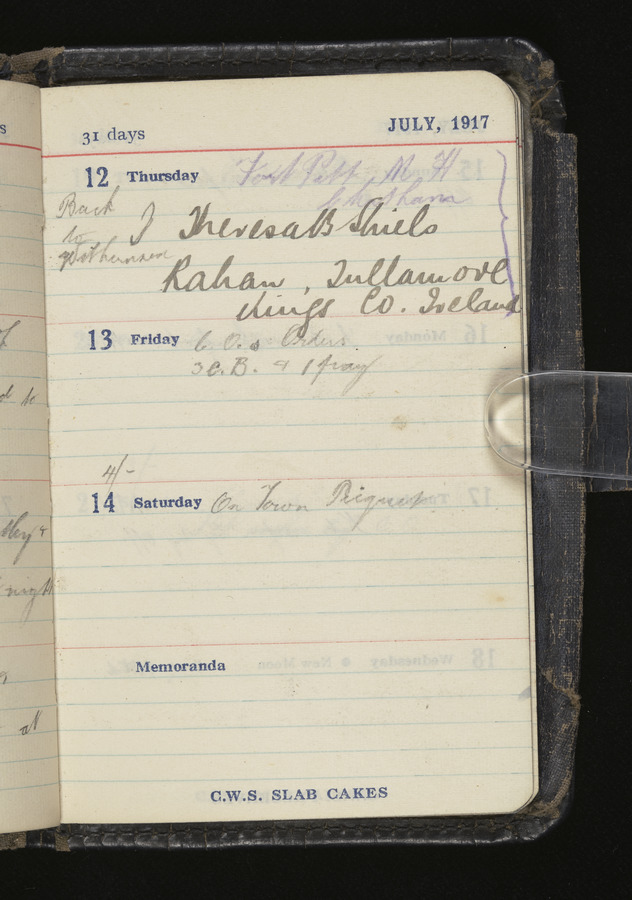 31 days JULY, 1917
12 Thursday Fort Pitt M. H
Chatham
Back
to
J Theresa B Shiels
Rahan, Tullamore
Kings Co. Ireland
13 Friday C. O.s Orders.
3 C.B. & 1 pay
4/-
14 Saturday On Town Picquet
Memoranda
C.W.S. SLAB CAKES